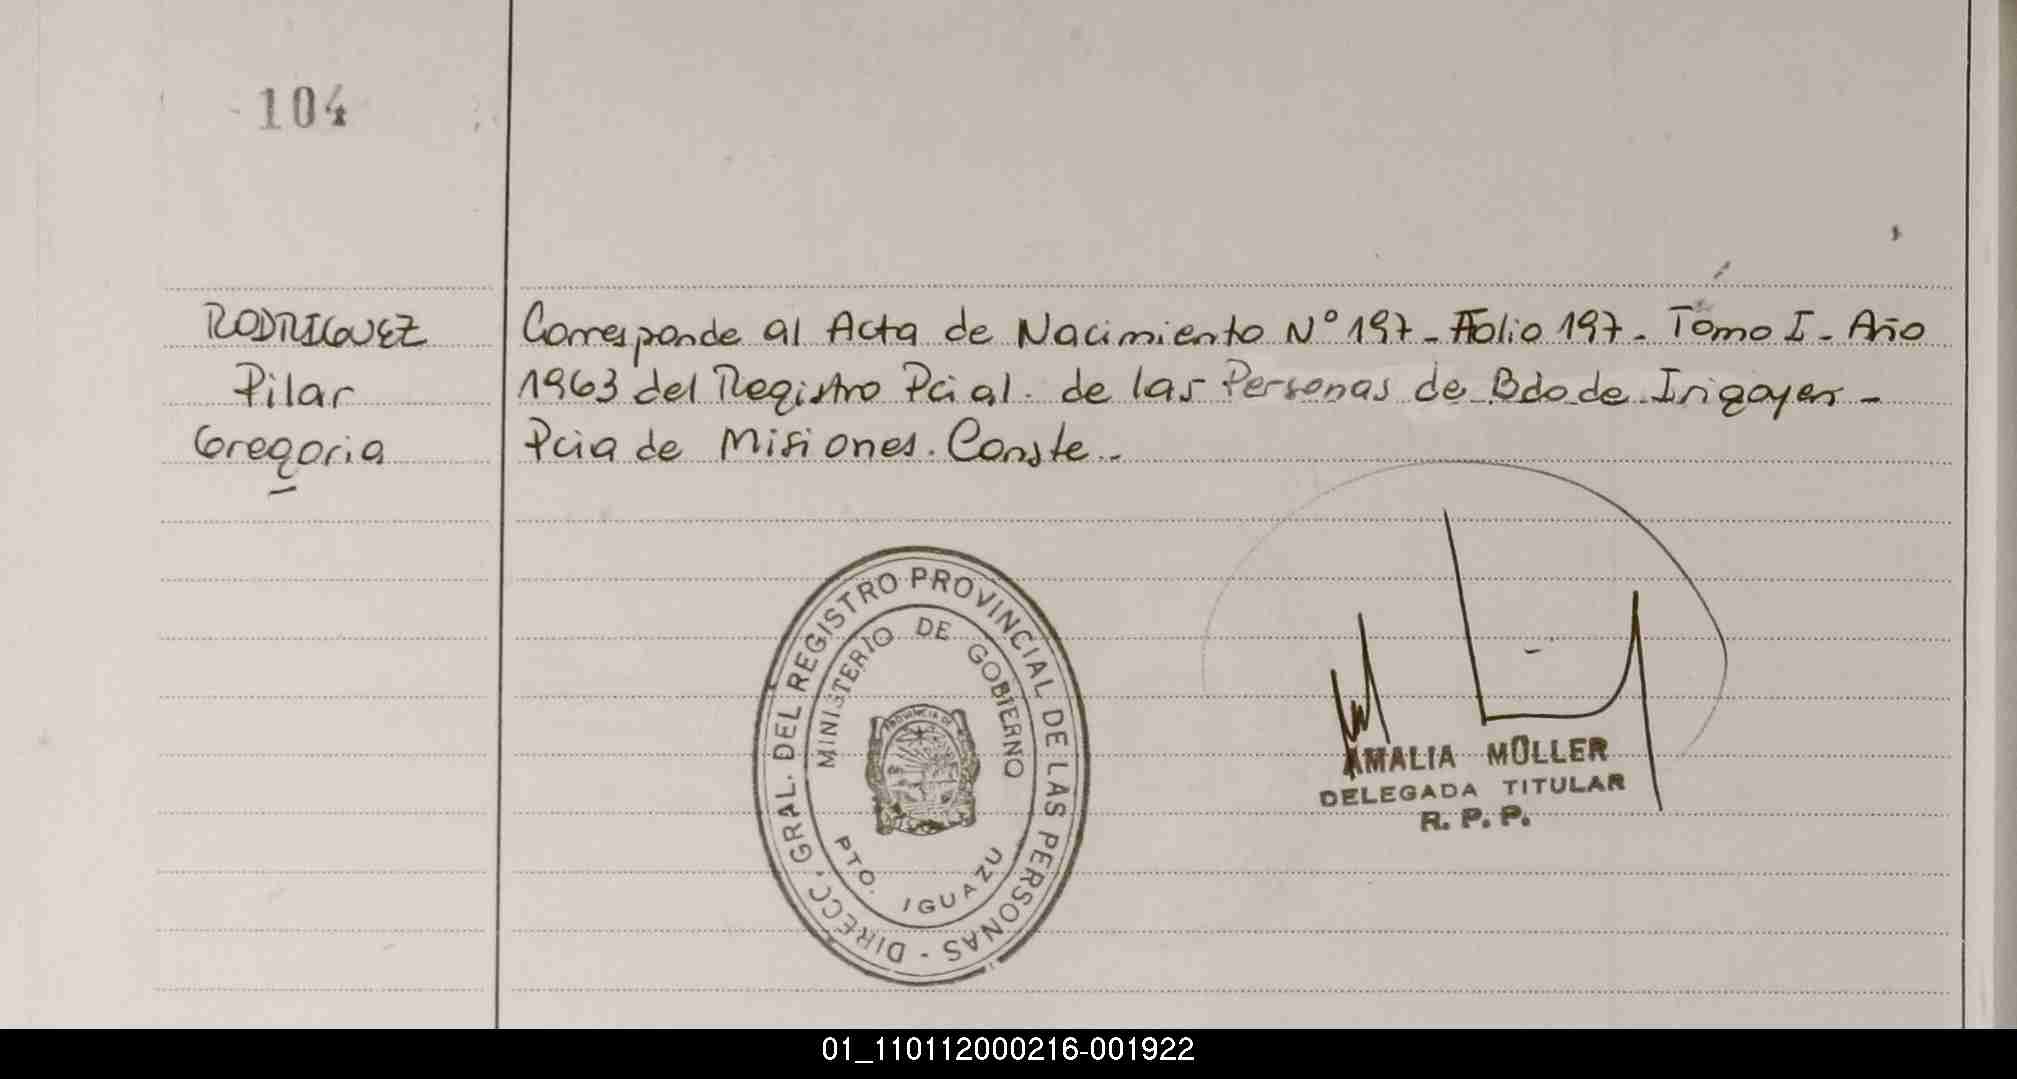 104
RODRIGUEZ
Pilar
Gregoria
Corresponde al Acta de Nacimiento N° 197 - Folio 197 - Tomo I - Año
1963 del Registro Pcial. de las Personas de Bdo de Irigoyen -
Pcia de Misiones. Conste..
DIRECC. GRAL. DEL REGISTRO PROVINCIAL DE LAS PERSONAS -
MINISTERIO DE GOBIERNO
PROVINCIA DE
PTO. IGUAZU
AMALIA MÜLLER
DELEGADA TITULAR
R. P. P.
01_110112000216-001922